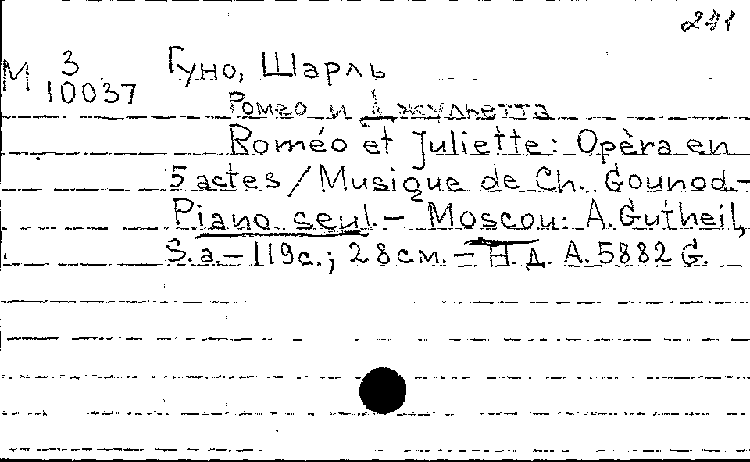 241
М 3 Гуно, Шарль
10037
Ромео и Джульетта
Roméo et Juliette: Opèra en
5 actes / Musique de Ch. Gounod.-
Piano seul. - Moscou: A. Gutheil,
S.a. - 119с.; 28 см. - Н.д. A. 5882 G.